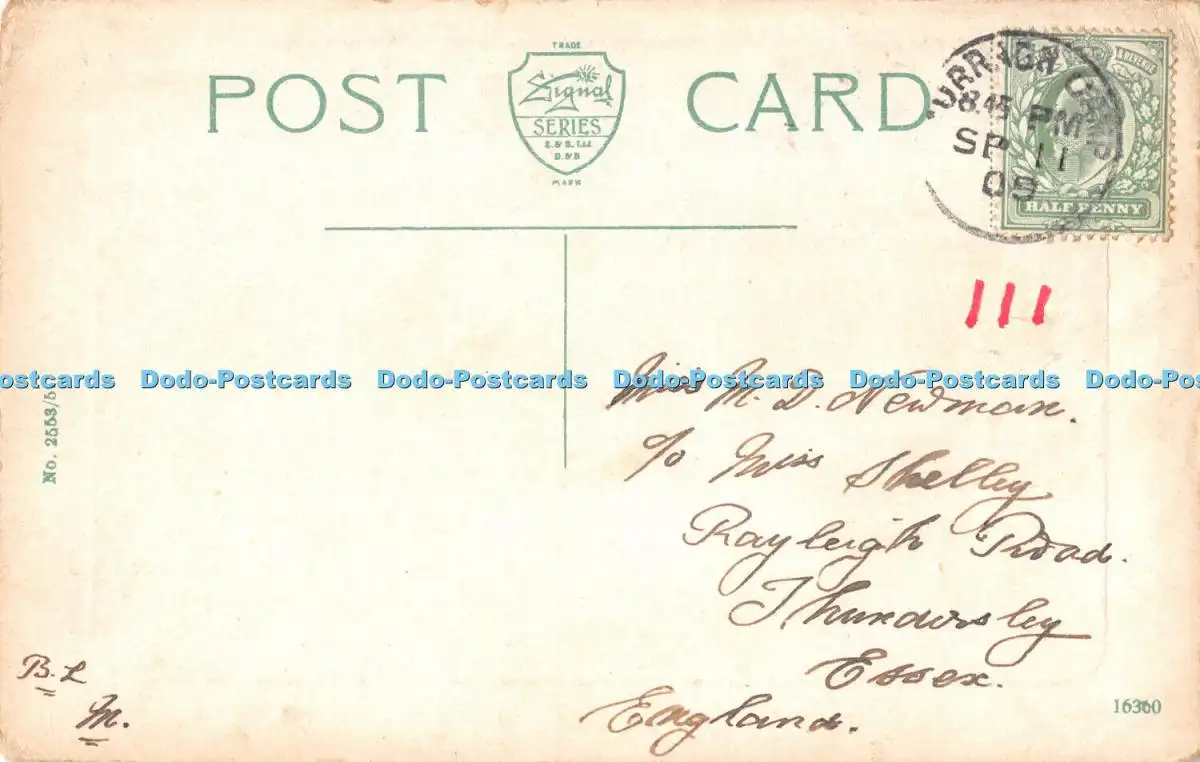 POST CARD
TRADE
Signal
SERIES
E. & S. Ltd
D. & B
MARK
CURRAGH CAMP
8.45 PM
SP 11
09
& REVENUE
HALF PENNY
111
Dodo-Postcards Dodo-Postcards Dodo-Postcards Dodo-Postcards
Miss M. D. Newman.
c/o Miss Shelley
Rayleigh Road.
Thundersley
Essex.
England.
No. 2553/5
B. L
M.
16360